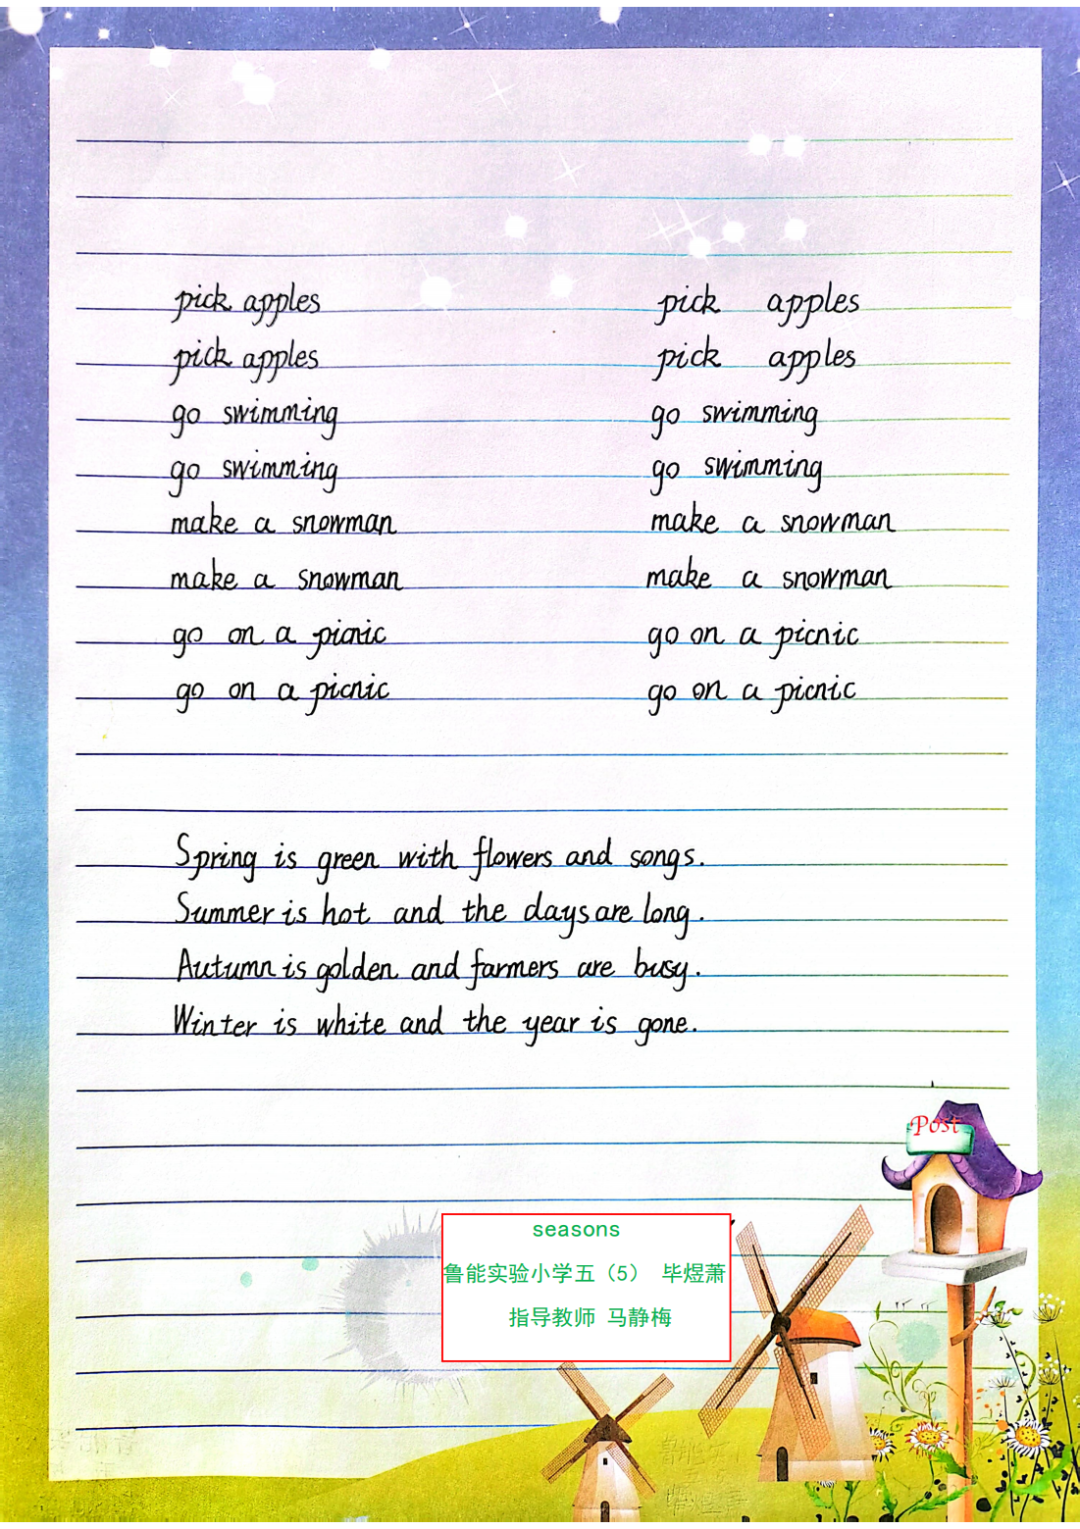 pick apples pick apples
pick apples pick apples
go swimming go swimming
go swimming go swimming
make a snowman make a snowman
make a snowman make a snowman
go on a picnic go on a picnic
go on a picnic go on a picnic
Spring is green with flowers and songs.
Summer is hot and the days are long.
Autumn is golden and farmers are busy.
Winter is white and the year is gone.
Post
seasons
鲁能实验小学五（5） 毕煜萧
指导教师 马静梅